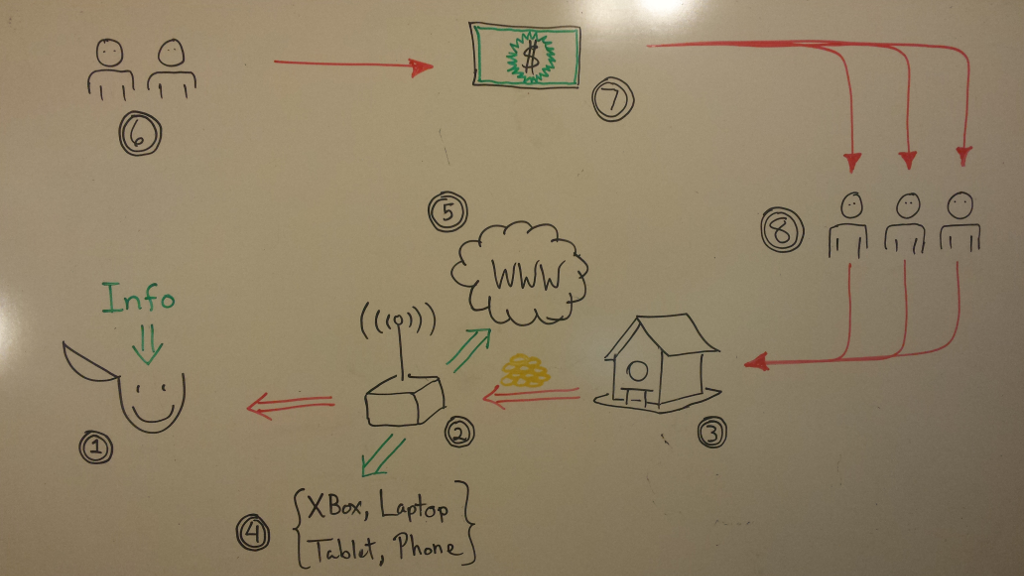 $
6
7
5
8
WWW
Info
1
2
3
4
{XBox, Laptop
Tablet, Phone}